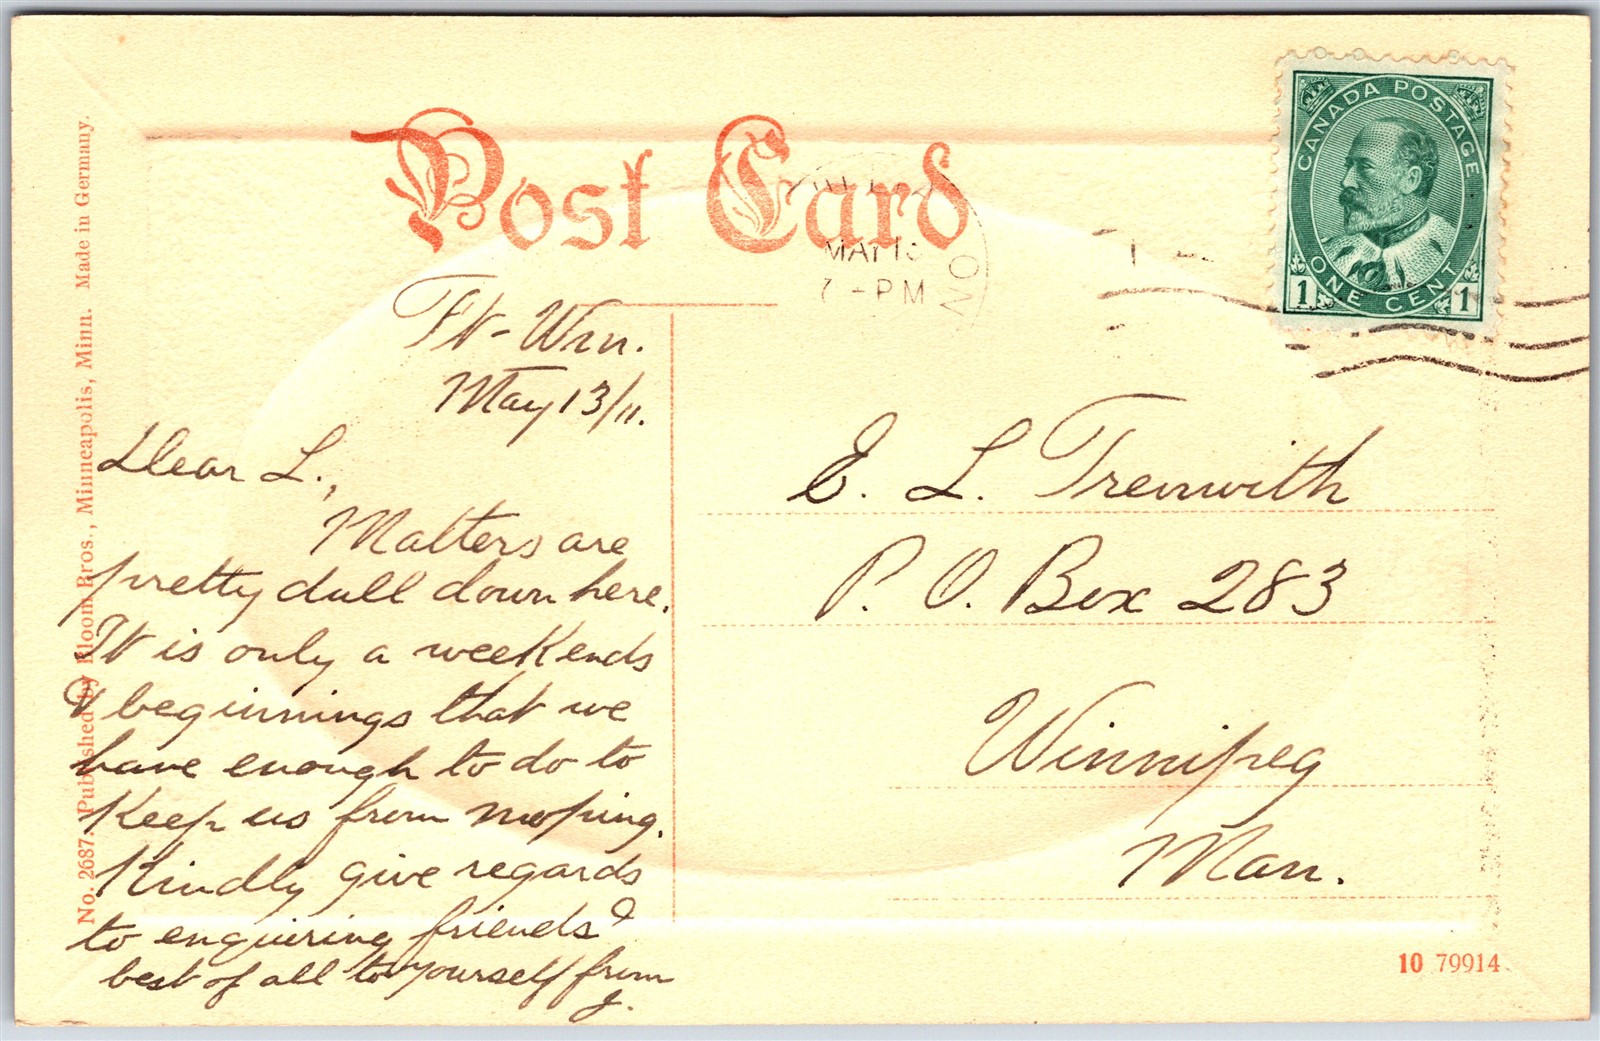 Post Card
CANADA POSTAGE
ONE CENT
1 1
MAY 13
7 - PM
ON
Ft-Wm.
May 13/11.
Dear L.,
Matters are
pretty dull down here.
It is only a weekends
& beginnings that we
have enough to do to
keep us from moping.
Kindly give regards
to enquiring friends &
best of all to yourself from
J.
E. L. Trenwith
P. O. Box 283
Winnipeg
Man.
No. 2687. Published by Bloom Bros., Minneapolis, Minn. Made in Germany.
10 79914